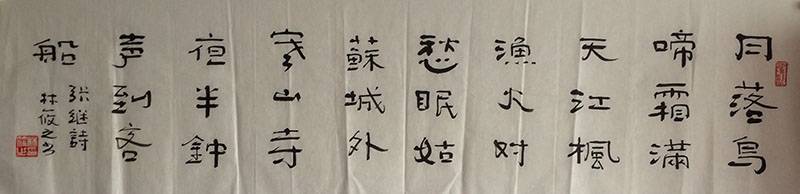 月落烏
啼霜滿
天江楓
漁火对
愁眠姑
蘇城外
寒山寺
夜半鈡
声到客
船
张继詩
林筱之书